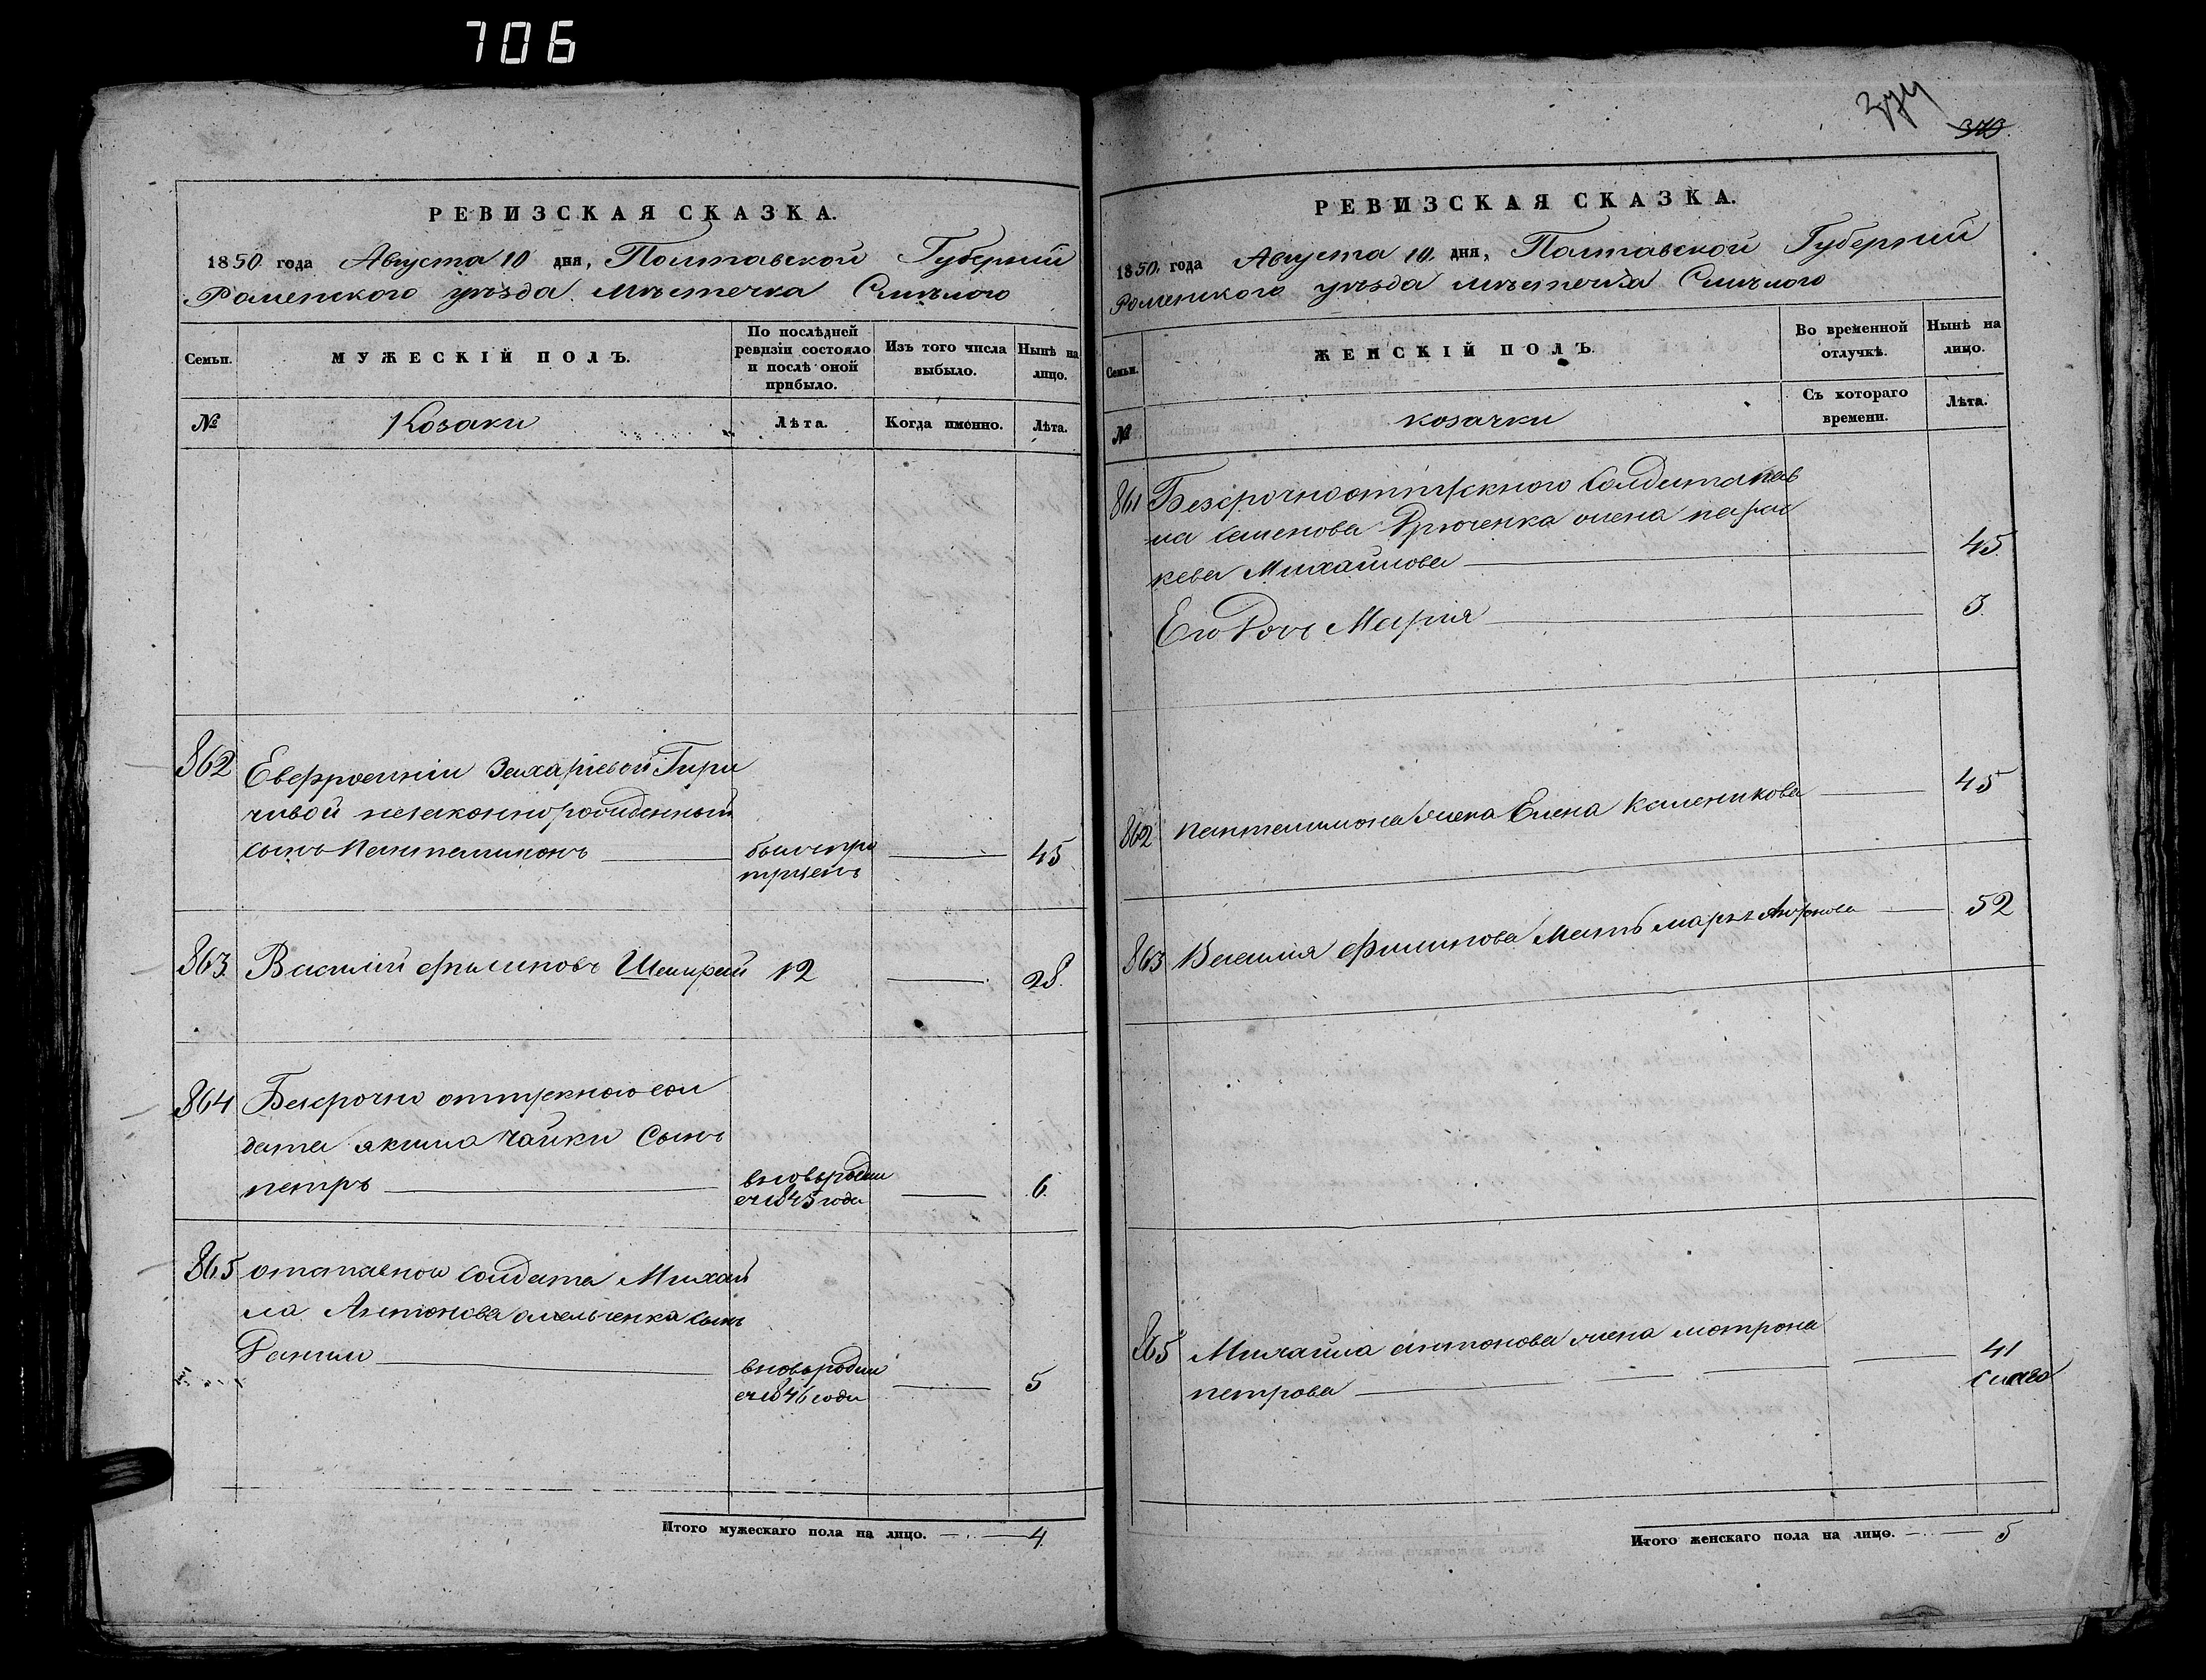 706
РЕВИЗСКАЯ СКАЗКА.
1850 года Августа 10 дня, Полтавской Губерніи
Роменского уѣзда мѣстечка Смѣлого
Семьи.
МУЖЕСКІЙ ПОЛЪ.
По послѣдней
ревизіи состояло
и послѣ оной
прибыло.
Изъ того числа
выбыло.
Нынѣ на
лицо.
№
Козаки
Лѣта.
Когда именно.
Лѣта.
862 Евфросиніи Захаріевой
чивой незаконнорожденный
сынъ Пантелимонъ
былъ про
пущенъ
45
863 Василій Филиповъ 12 28.
864 Безсрочно отпускного сол
дата якима Чайки Сынъ
петръ
вновь родил
ся 1845 года
6.
865 отставнои солдата Михай
ла Антонова омельченка сынъ
Данило
вновь родил
ся 1846 года
5
Итого мужескаго пола на лицо. 4.
374
373
РЕВИЗСКАЯ СКАЗКА.
1850. года Августа 10. дня, Полтавской Губерніи
Роменского уѣзда мѣстечка Смѣлого
Семьи.
ЖЕНСКІЙ ПОЛЪ.
Во временной
отлучкѣ.
Нынѣ на
лицо.
№
козачки
Съ котораго
времени.
Лѣта.
861 Безсрочноотпускного Солдата пав
ла Семенова жена парас
кева Михайлова 45
Его Дочь Марія 3.
862 пантелимона жена Елена 45
863 Василия Филипова Мать 52
865 Михайла антонова жена мотрона
петрова
41
Итого женскаго пола на лицо. 5